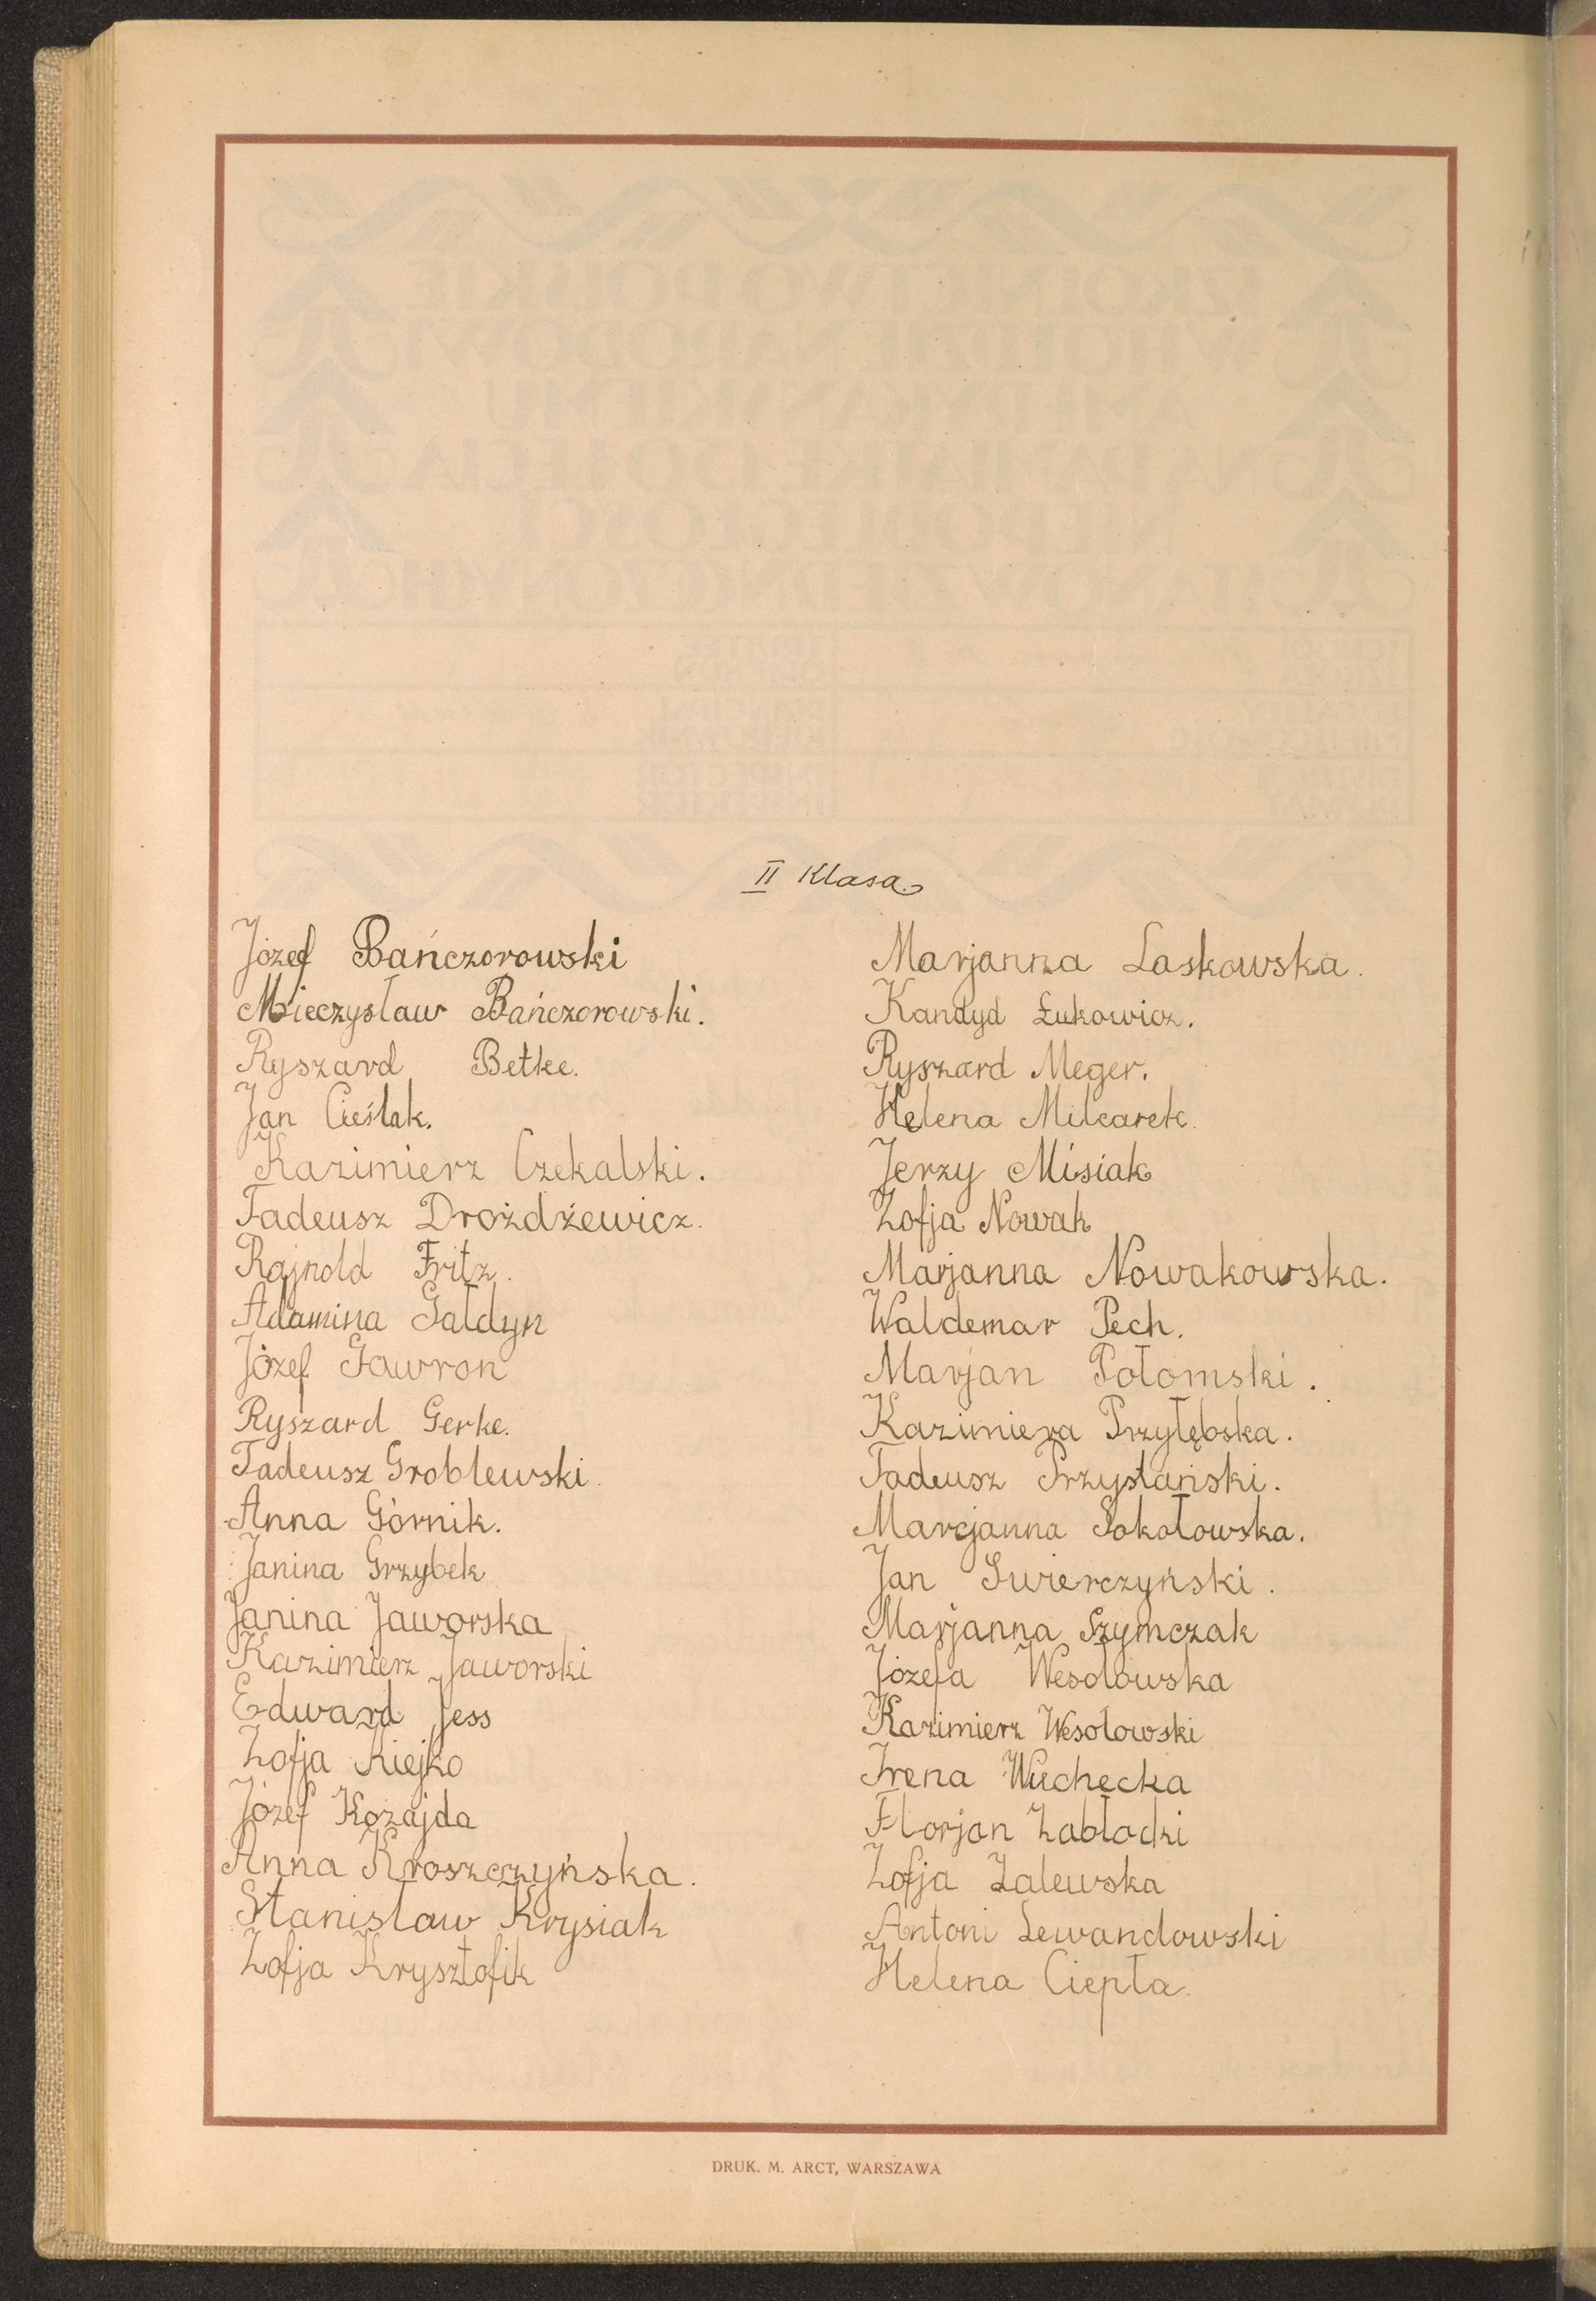 II Klasa
Józef Bańczorowski
Mieczysław Bańczorowski.
Ryszard Betke.
Jan Cieślak.
Kazimierz Czekalski.
Tadeusz Drożdżewicz.
Rajnold Fritz.
Adamina Gałdyn
Józef Gawron
Ryszard Gerke.
Tadeusz Groblewski.
Anna Górnik.
Janina Grzybek
Janina Jaworska
Kazimierz Jaworski
Edward Jess
Zofja Kiejko
Józef Kozajda
Anna Kroszczyńska.
Stanisław Krysiak
Zofja Krysztofik
Marjanna Laskowska.
Kandyd Łukowicz.
Ryszard Meger.
Helena Milcarek.
Jerzy Misiak
Zofja Nowak
Marjanna Nowakowska.
Waldemar Pech.
Marjan Połomski.
Kazimiera Przyłębska.
Tadeusz Przystański.
Marcjanna Sokołowska.
Jan Swierczyński.
Marjanna Szymczak
Józefa Wesołowska
Kazimierz Wesołowski
Irena Wuchecka
Florjan Zabłocki
Zofja Zalewska
Antoni Lewandowski
Helena Ciepła.
DRUK. M. ARCT, WARSZAWA